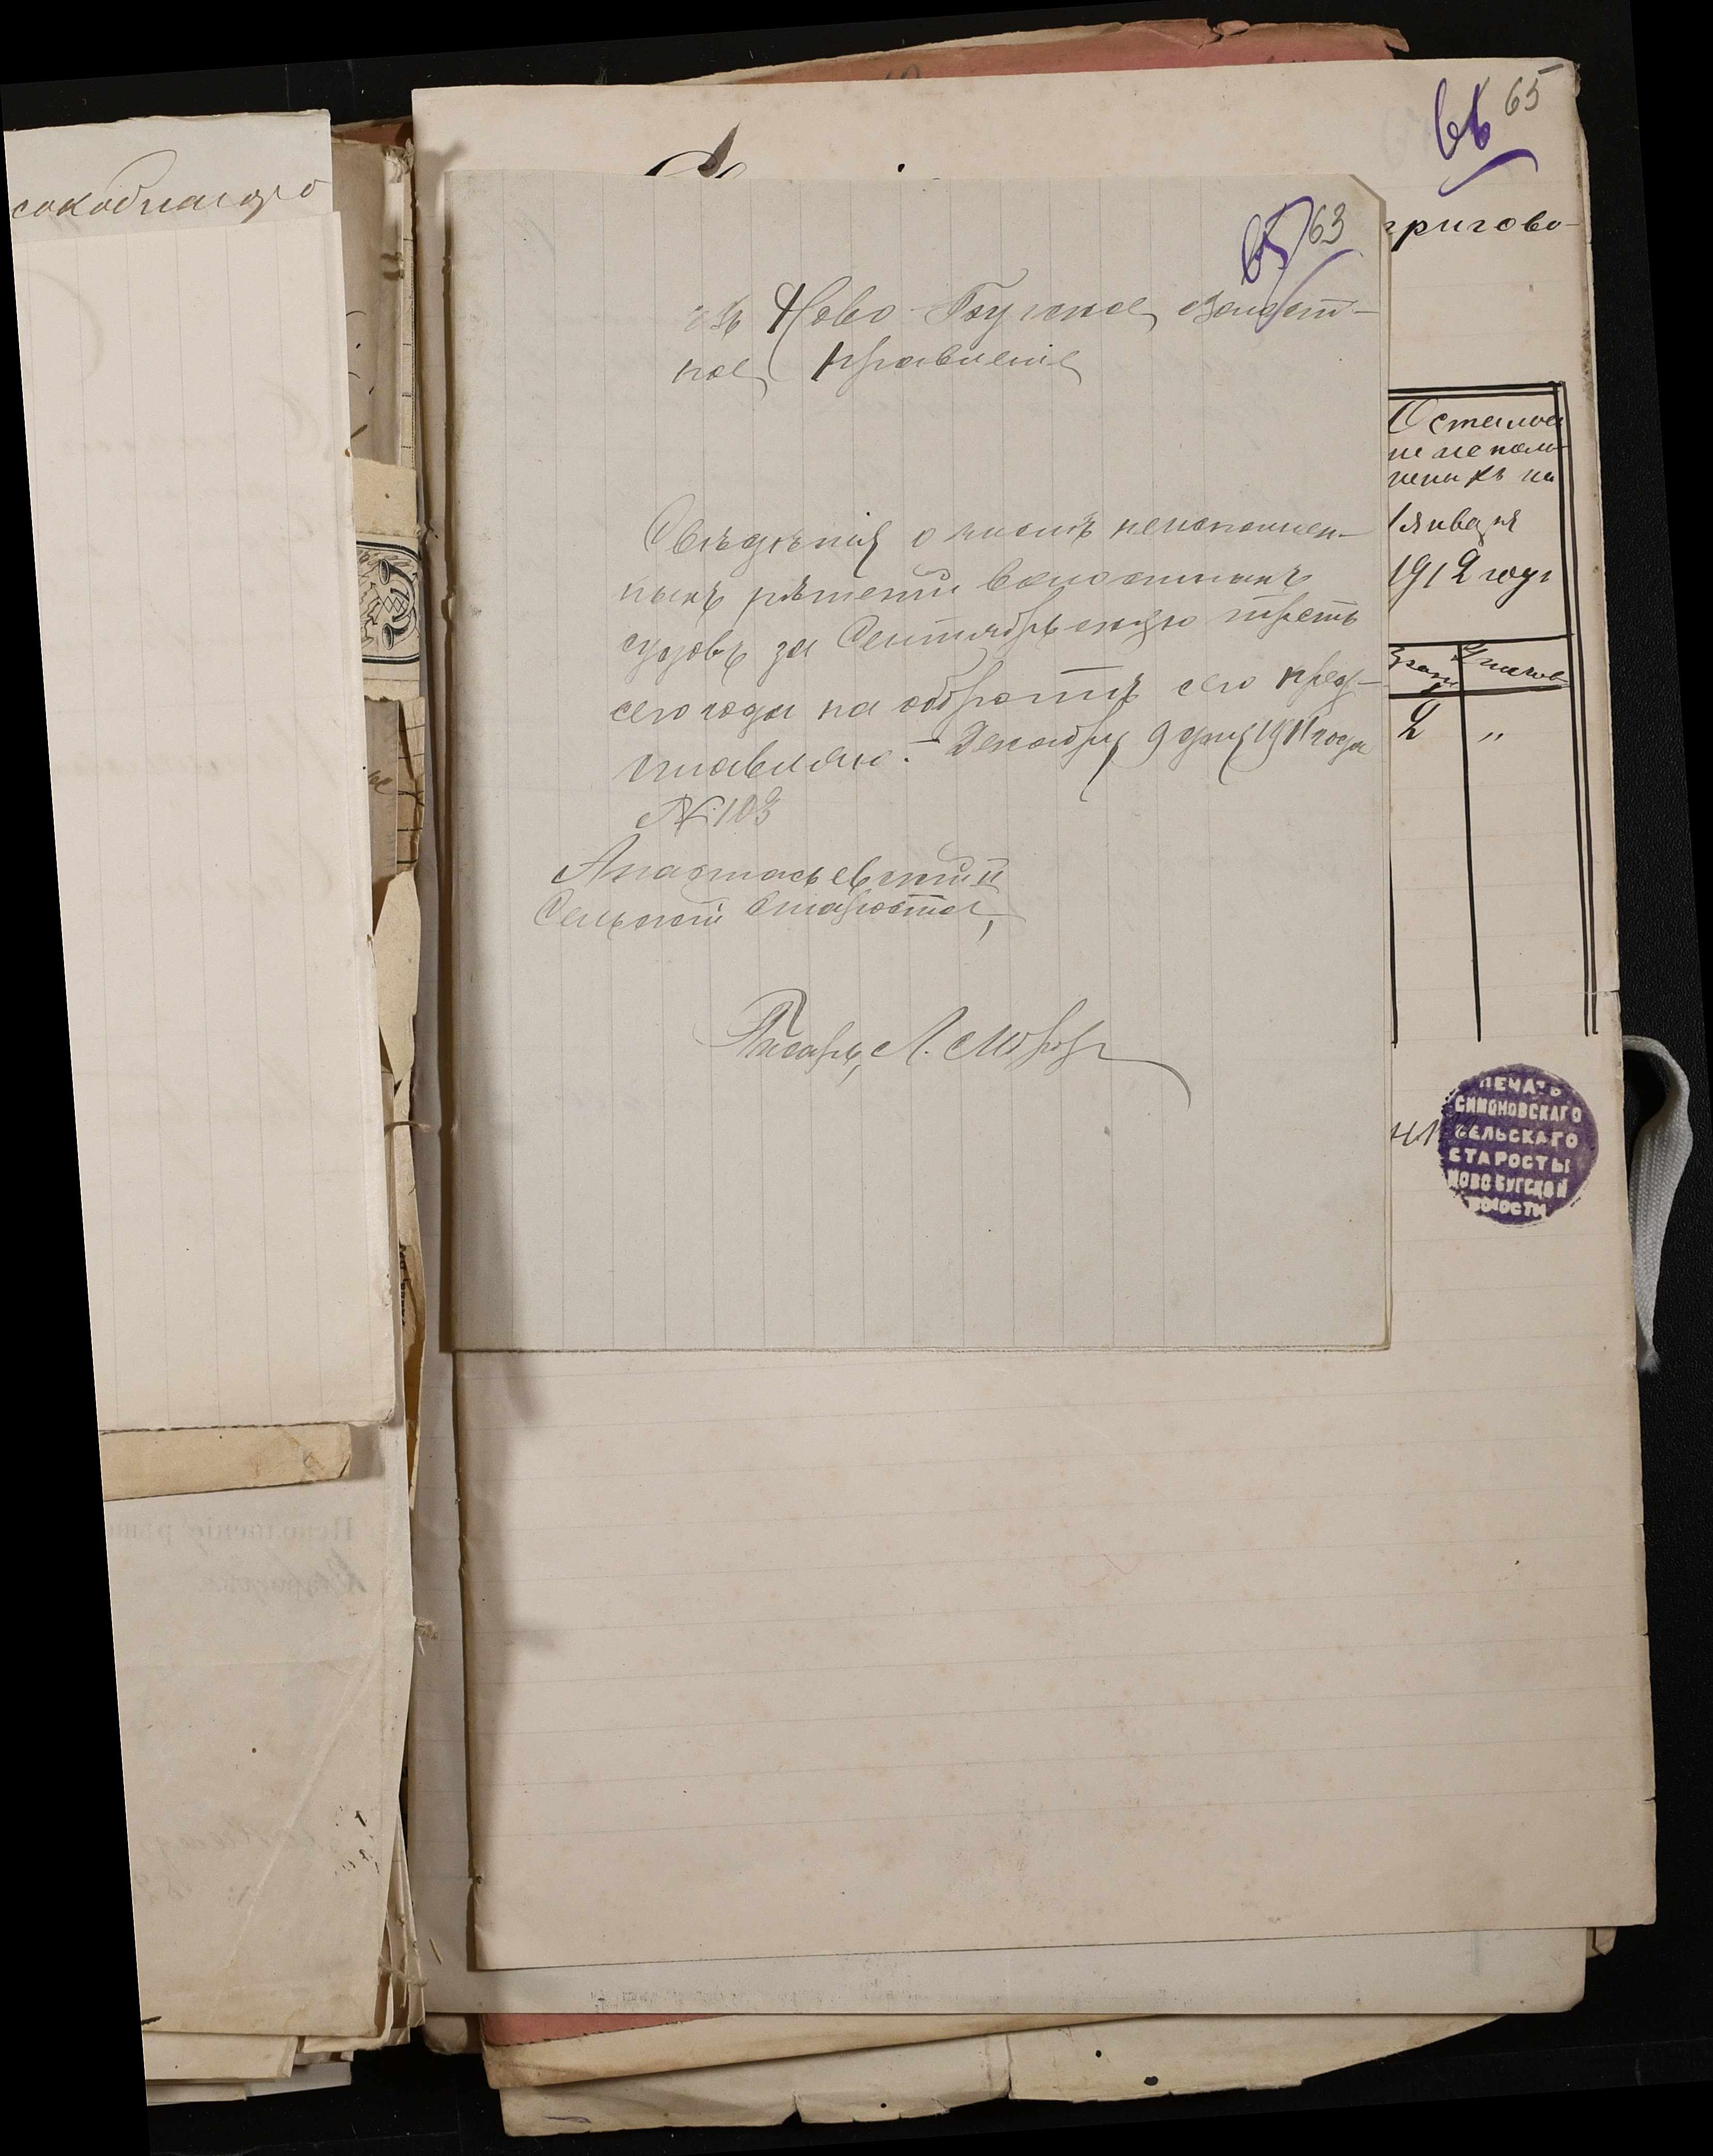 65
пригово-
65 63
въ Ново-Бугское волост-
ное правление
Сведения о числе неисполнен-
ныхъ решений волостныхъ
судовъ за Сентябрьскую треть
сего года на обороте сего пред-
ставляю. Декабря 9 дня 1911 года
№ 103
Анастасьевский
Сельский староста,
Писарь, А. Мороз
Остало
не исполн
ненныхъ на
1 января
1912 года
2 "
ПЕЧАТЬ
СИМОНОВСКАГО
СЕЛЬСКАГО
СТАРОСТЫ
НОВОБУГСКОЙ
ВОЛОСТИ